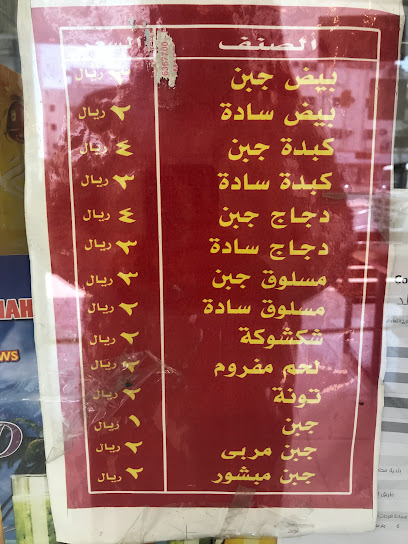 الصنف السعر
بيض جبن ريال
بيض سادة ٢ ريال
كبدة جبن ٤ ريال
كبدة سادة ٣ ريال
دجاج جبن ٤ ريال
دجاج سادة ٣ ريال
مسلوق جبن ٣ ريال
مسلوق سادة ٢ ريال
شكشوكة ٢ ريال
لحم مفروم ٢ ريال
تونة ٢ ريال
جبن ١ ريال
جبن مربى ٢ ريال
جبن مبشور ٢ ريال